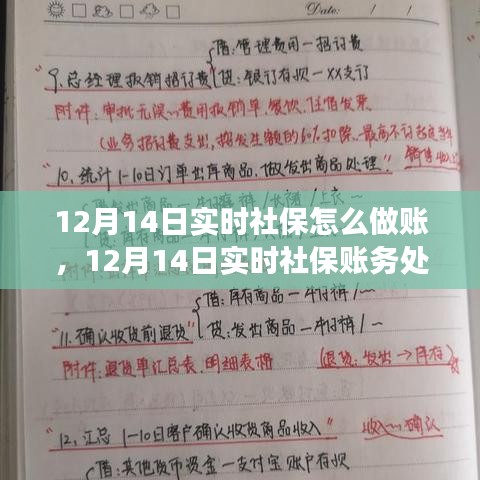 Date: / /
借:管理费用一招待费
9.总经理报销招待费
贷:银行存款一XX支行
附件:审批无误的费用报销单、餐饮、住宿发票
(业务招待费支出,按发生额的60%扣除,最高不可超过当年
销售收入
10.统计1-10日订单出库商品,做发出商品处理"
12月14日实时社保怎么做账
,12月14日实时社保账务处
借:库存商品一牛仔裤/一
"11.确认收货前退货"
贷:发出商品一牛仔裤/一
附件:退货单汇总表、明细表格
(退货:发出→库存)
"12.汇总1-10日客户确认收货商品收入"
收入一确认
借:其他货币资金一支付宝账户存款